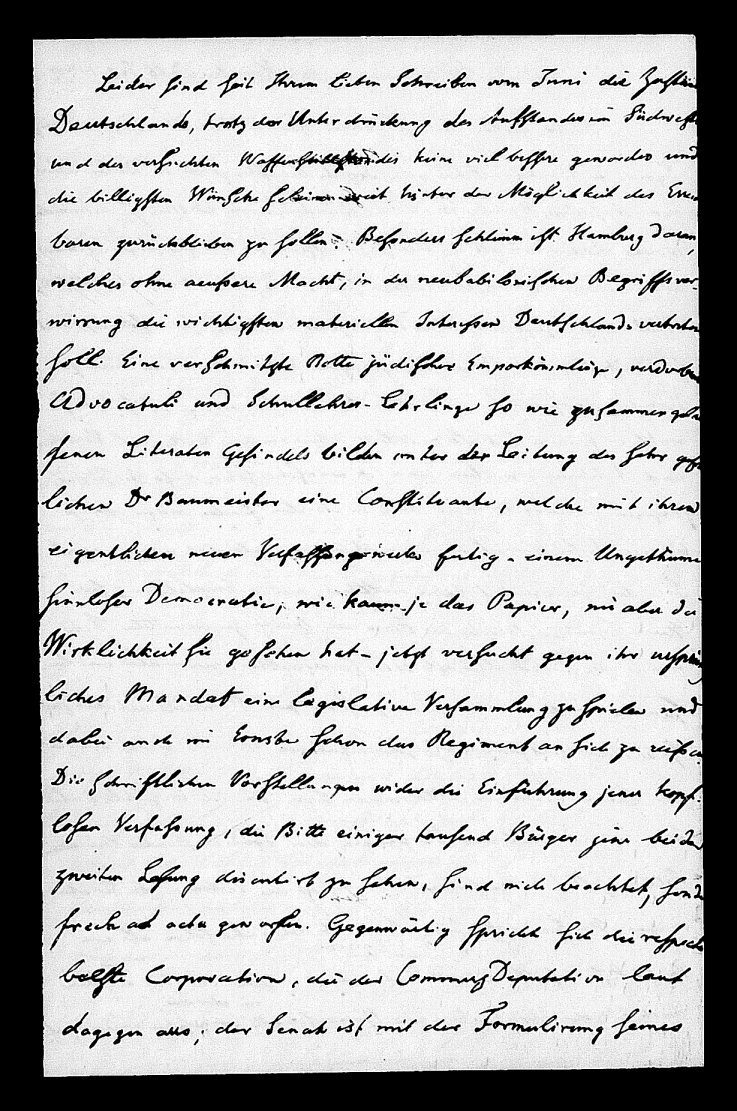 Leider sind seit Ihrem lieben Schreiben vom Juni die
Deutschlands, trotz der Unterdrückung des Aufstandes im Südwesten
und des versuchten Waffenstillstandes keine viel bessere geworden und
die billigsten Wünsche scheinen weit hinter der Möglichkeit des Errei-
baren zurückbleiben zu sollen. Besonders schlimm ist Hamburg daran,
welches ohne aeussere Macht, in der neubabilonischen Begriffsver-
wirrung die wichtigsten materiellen Interessen Deutschlands vertreten
soll. Eine verschmitzte Rotte jüdischer Emporkömmlinge, verdorbene
Advocatuli und Schullehrer-Lehrlinge so wie zusammengelau-
fenen Literaten Gesindels bilden unter der Leitung des sehr gefähr-
lichen Dr Baumeister eine Constituante, welche mit ihrem
eigentlichen neuen Verfassungswerke fertig - einem Ungethüme
sinnloser Democratie, wie kaum je das Papier, nie aber die
Wirklichkeit sie gesehen hat - jetzt versucht gegen ihr ursprüng-
liches Mandat eine legislative Versammlung zu spielen und
dabei auch im Ernste schon das Regiment an sich zu reissen.
Die schriftlichen Vorstellungen wider die Einführung jener kopf-
losen Verfassung, die Bitte einiger tausend Bürger jene bei der
zweiten Lesung discutirt zu sehen, sind nicht beachtet, sondern
frech ad acta geworfen. Gegenwärtig spricht sich die
Corporation, die der Commerz Deputation laut
dagegen aus; der Senat ist mit der Formulirung seines